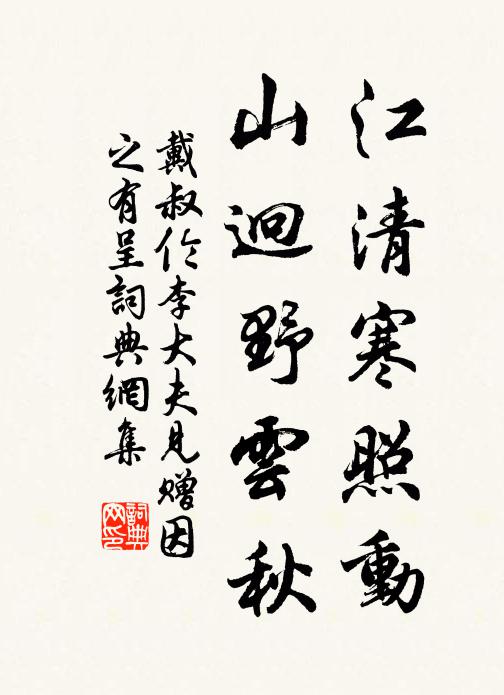 江清寒照動
山迴野雲秋
戴叔伦李大夫見贈因
之有呈詞典網集
詞典网印